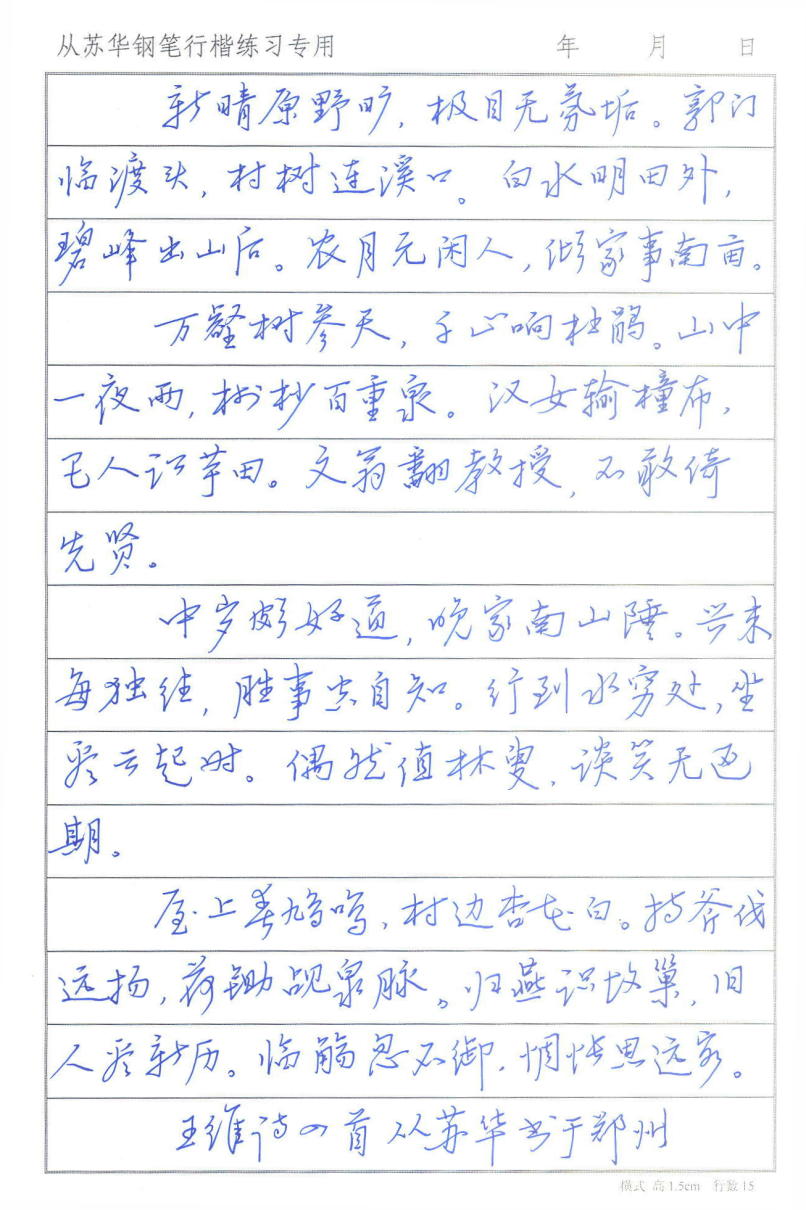 从苏华钢笔行楷练习专用 年 月 日
新晴原野旷，极目无氛垢。郭门
临渡头，村树连溪口。白水明田外，
碧峰出山后。农月无闲人，倾家事南亩。
万壑树参天，千山响杜鹃。山中
一夜雨，树杪百重泉。汉女输橦布，
巴人讼芋田。文翁翻教授，不敢倚
先贤。
中岁颇好道，晚家南山陲。兴来
每独往，胜事空自知。行到水穷处，坐
看云起时。偶然值林叟，谈笑无还
期。
屋上春鸠鸣，村边杏花白。持斧伐
远扬，荷锄觇泉脉。归燕识故巢，旧
人看新历。临觞忽不御，惆怅思远客。
王维诗四首 从苏华书于郑州
横式 高1.5cm 行数15